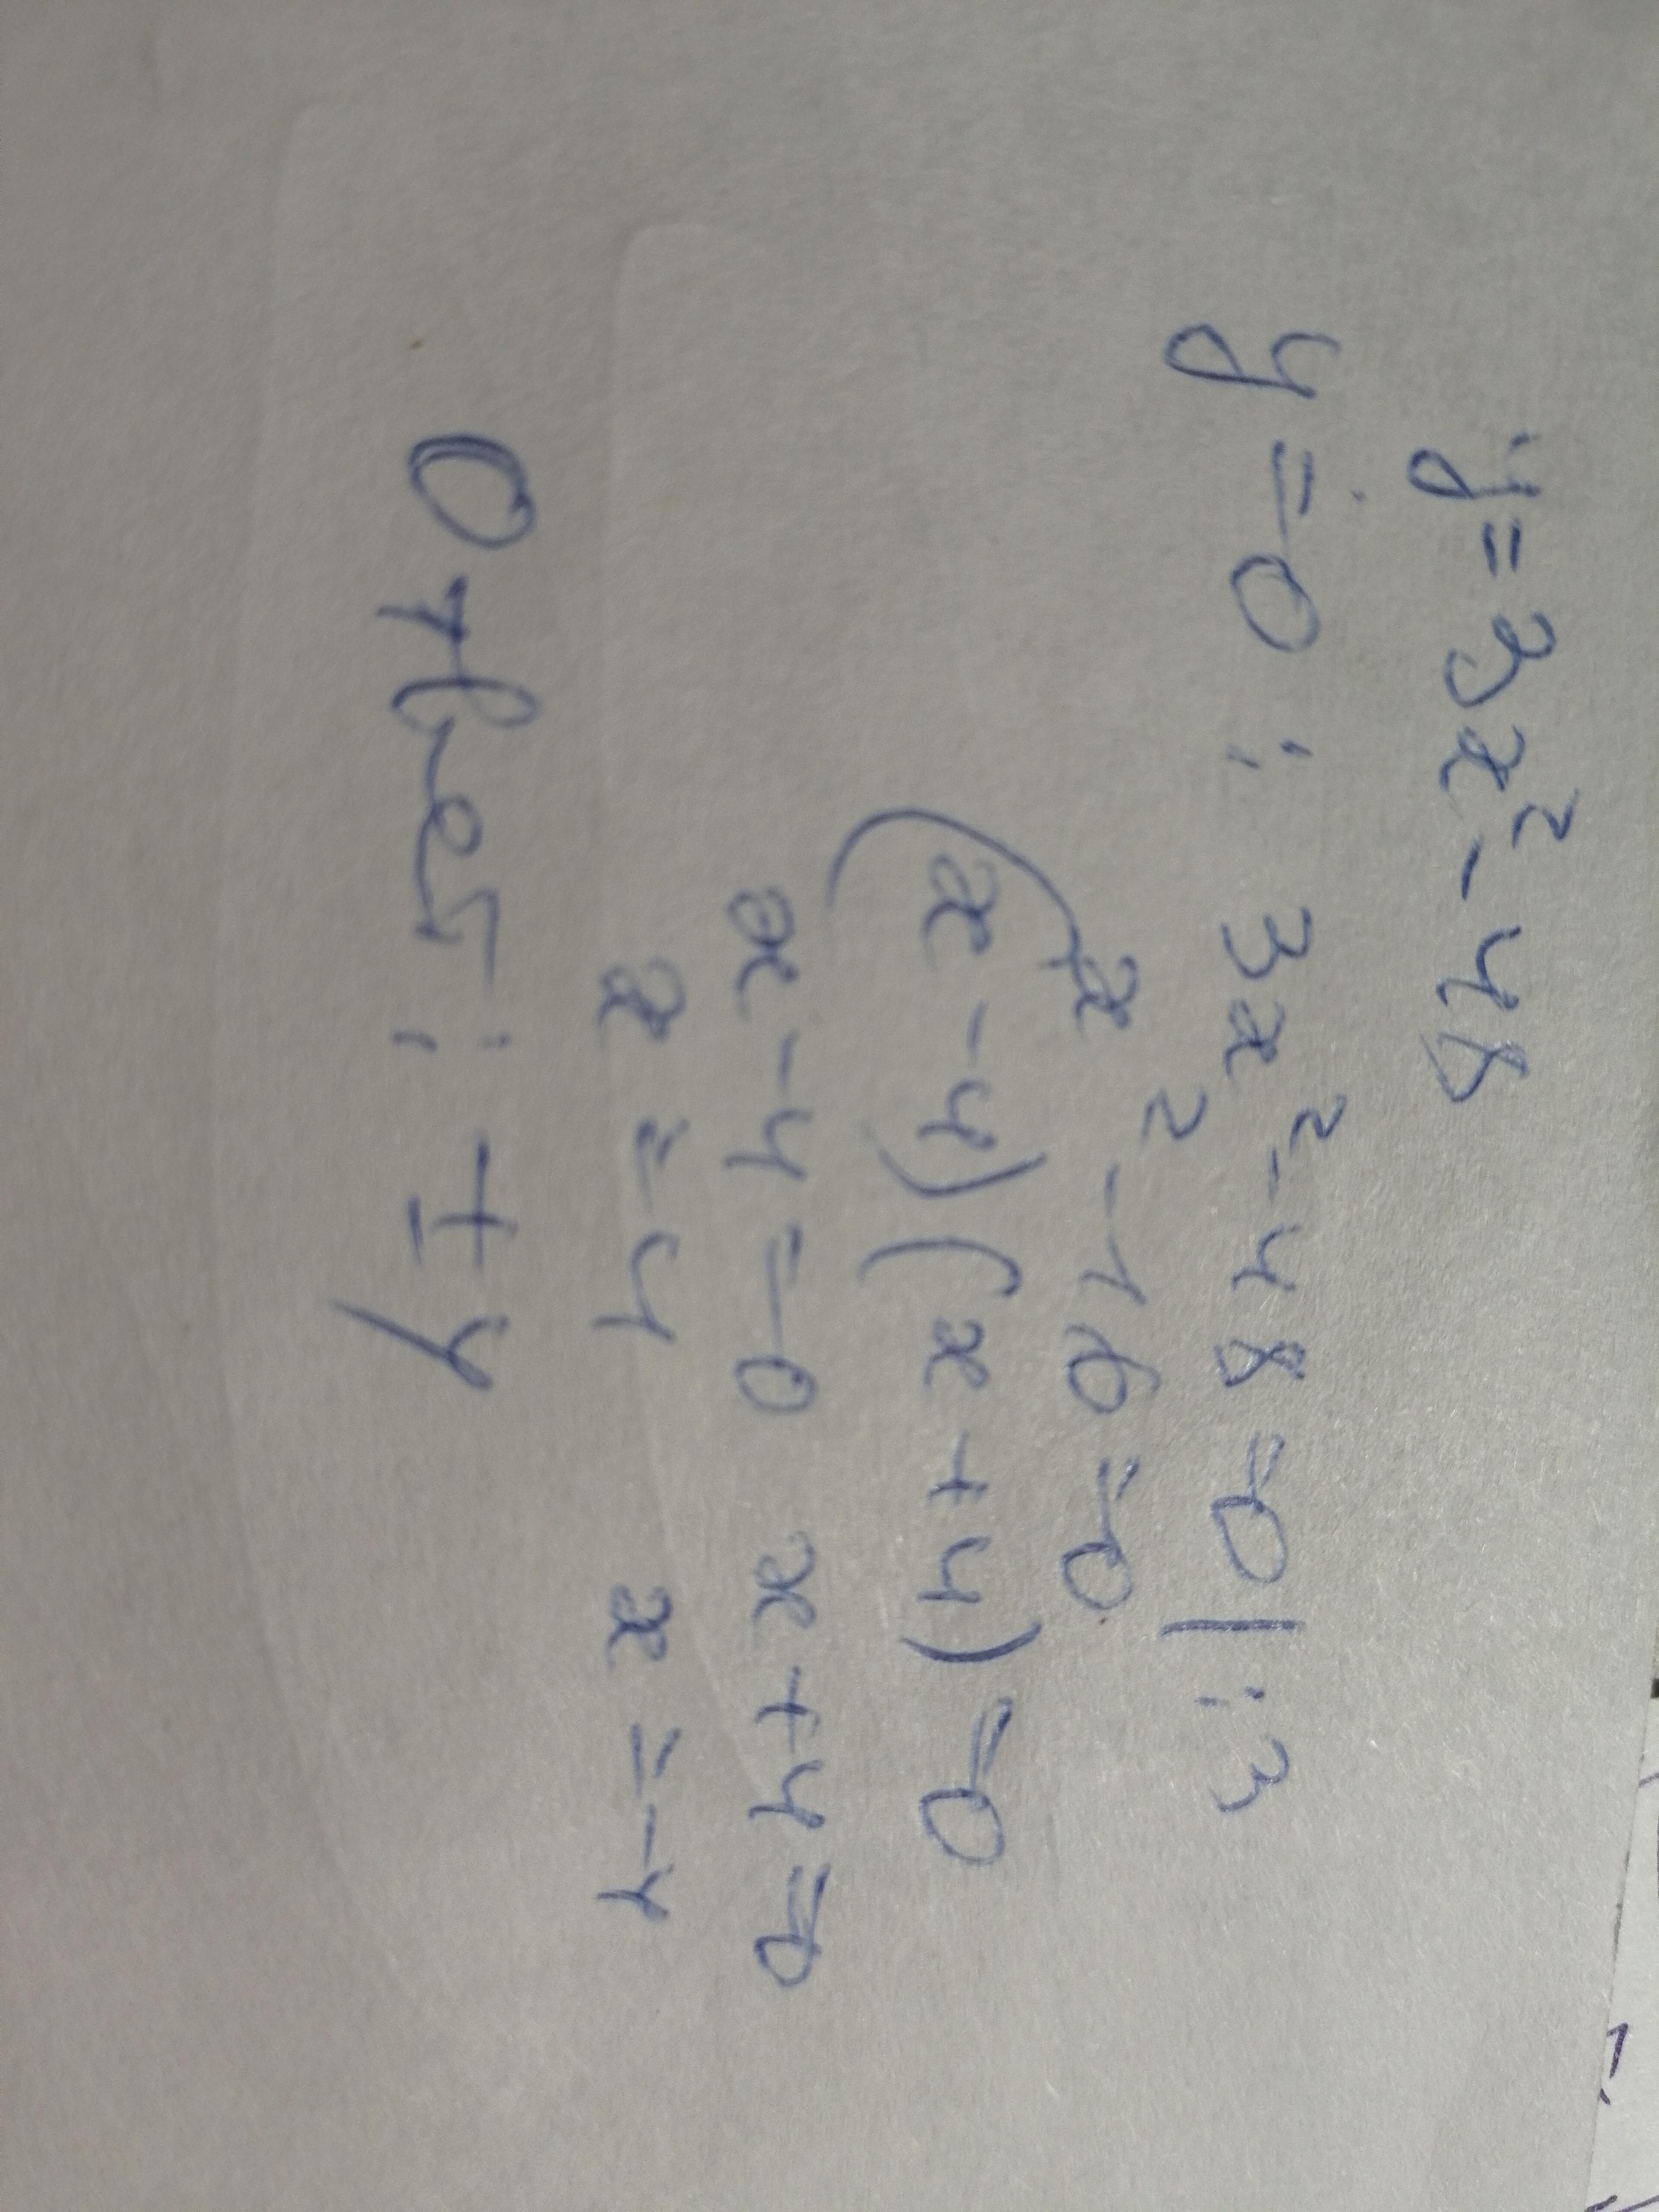 y = 3x² - 48
y = 0 : 3x² - 48 = 0 | : 3
x² - 16 = 0
(x - 4)(x + 4) = 0
x - 4 = 0 x + 4 = 0
x = 4 x = -4
Ответ : ± 4